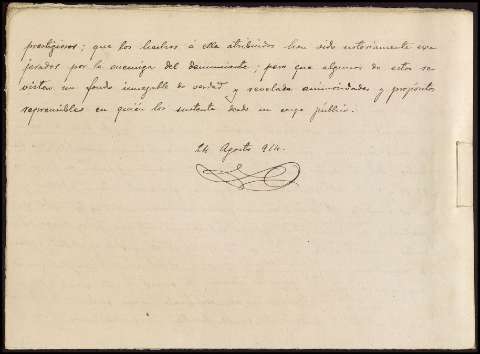 prestigiosos; que los hechos a ella atribuidos han sido notoriamente exa
jerados por la enemiga del denunciante; pero que algunos de estos re
visten un fondo innegable de verdad y revelada animosidades y propósitos
reprensibles en quién los sustenta desde un cargo público.
24 Agosto 914.